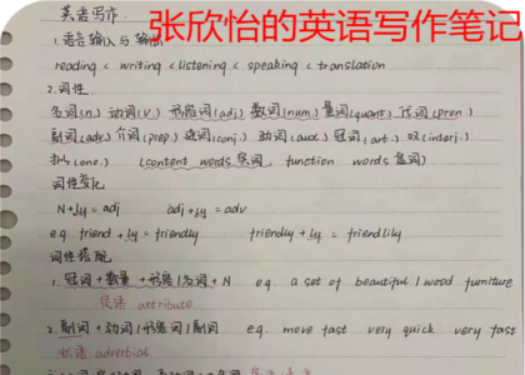 张欣怡的英语写作笔记
英语写作
1.语言输入与输出
reading < writing < listening < speaking < translation
2.词性
名词(n.) 动词(v.) 形容词(adj) 数词(num) 量词(quant) 代词(pron.)
副词(adv.) 介词(prep.) 连词(conj.) 助词(aux.) 冠词(art.) 叹(interj.)
拟(ono.) (content words 实词, function words 虚词)
词性变化
N+ly = adj adj+ly = adv
e.g. friend + ly = friendly friendly + ly = friendlily
词性搭配
1.冠词+数量+形容|名词+N e.g. a set of beautiful | wood furniture
定语 attribute
2.副词+动词|形容词|副词 e.g. move fast very quick very fast
状语 adverbial